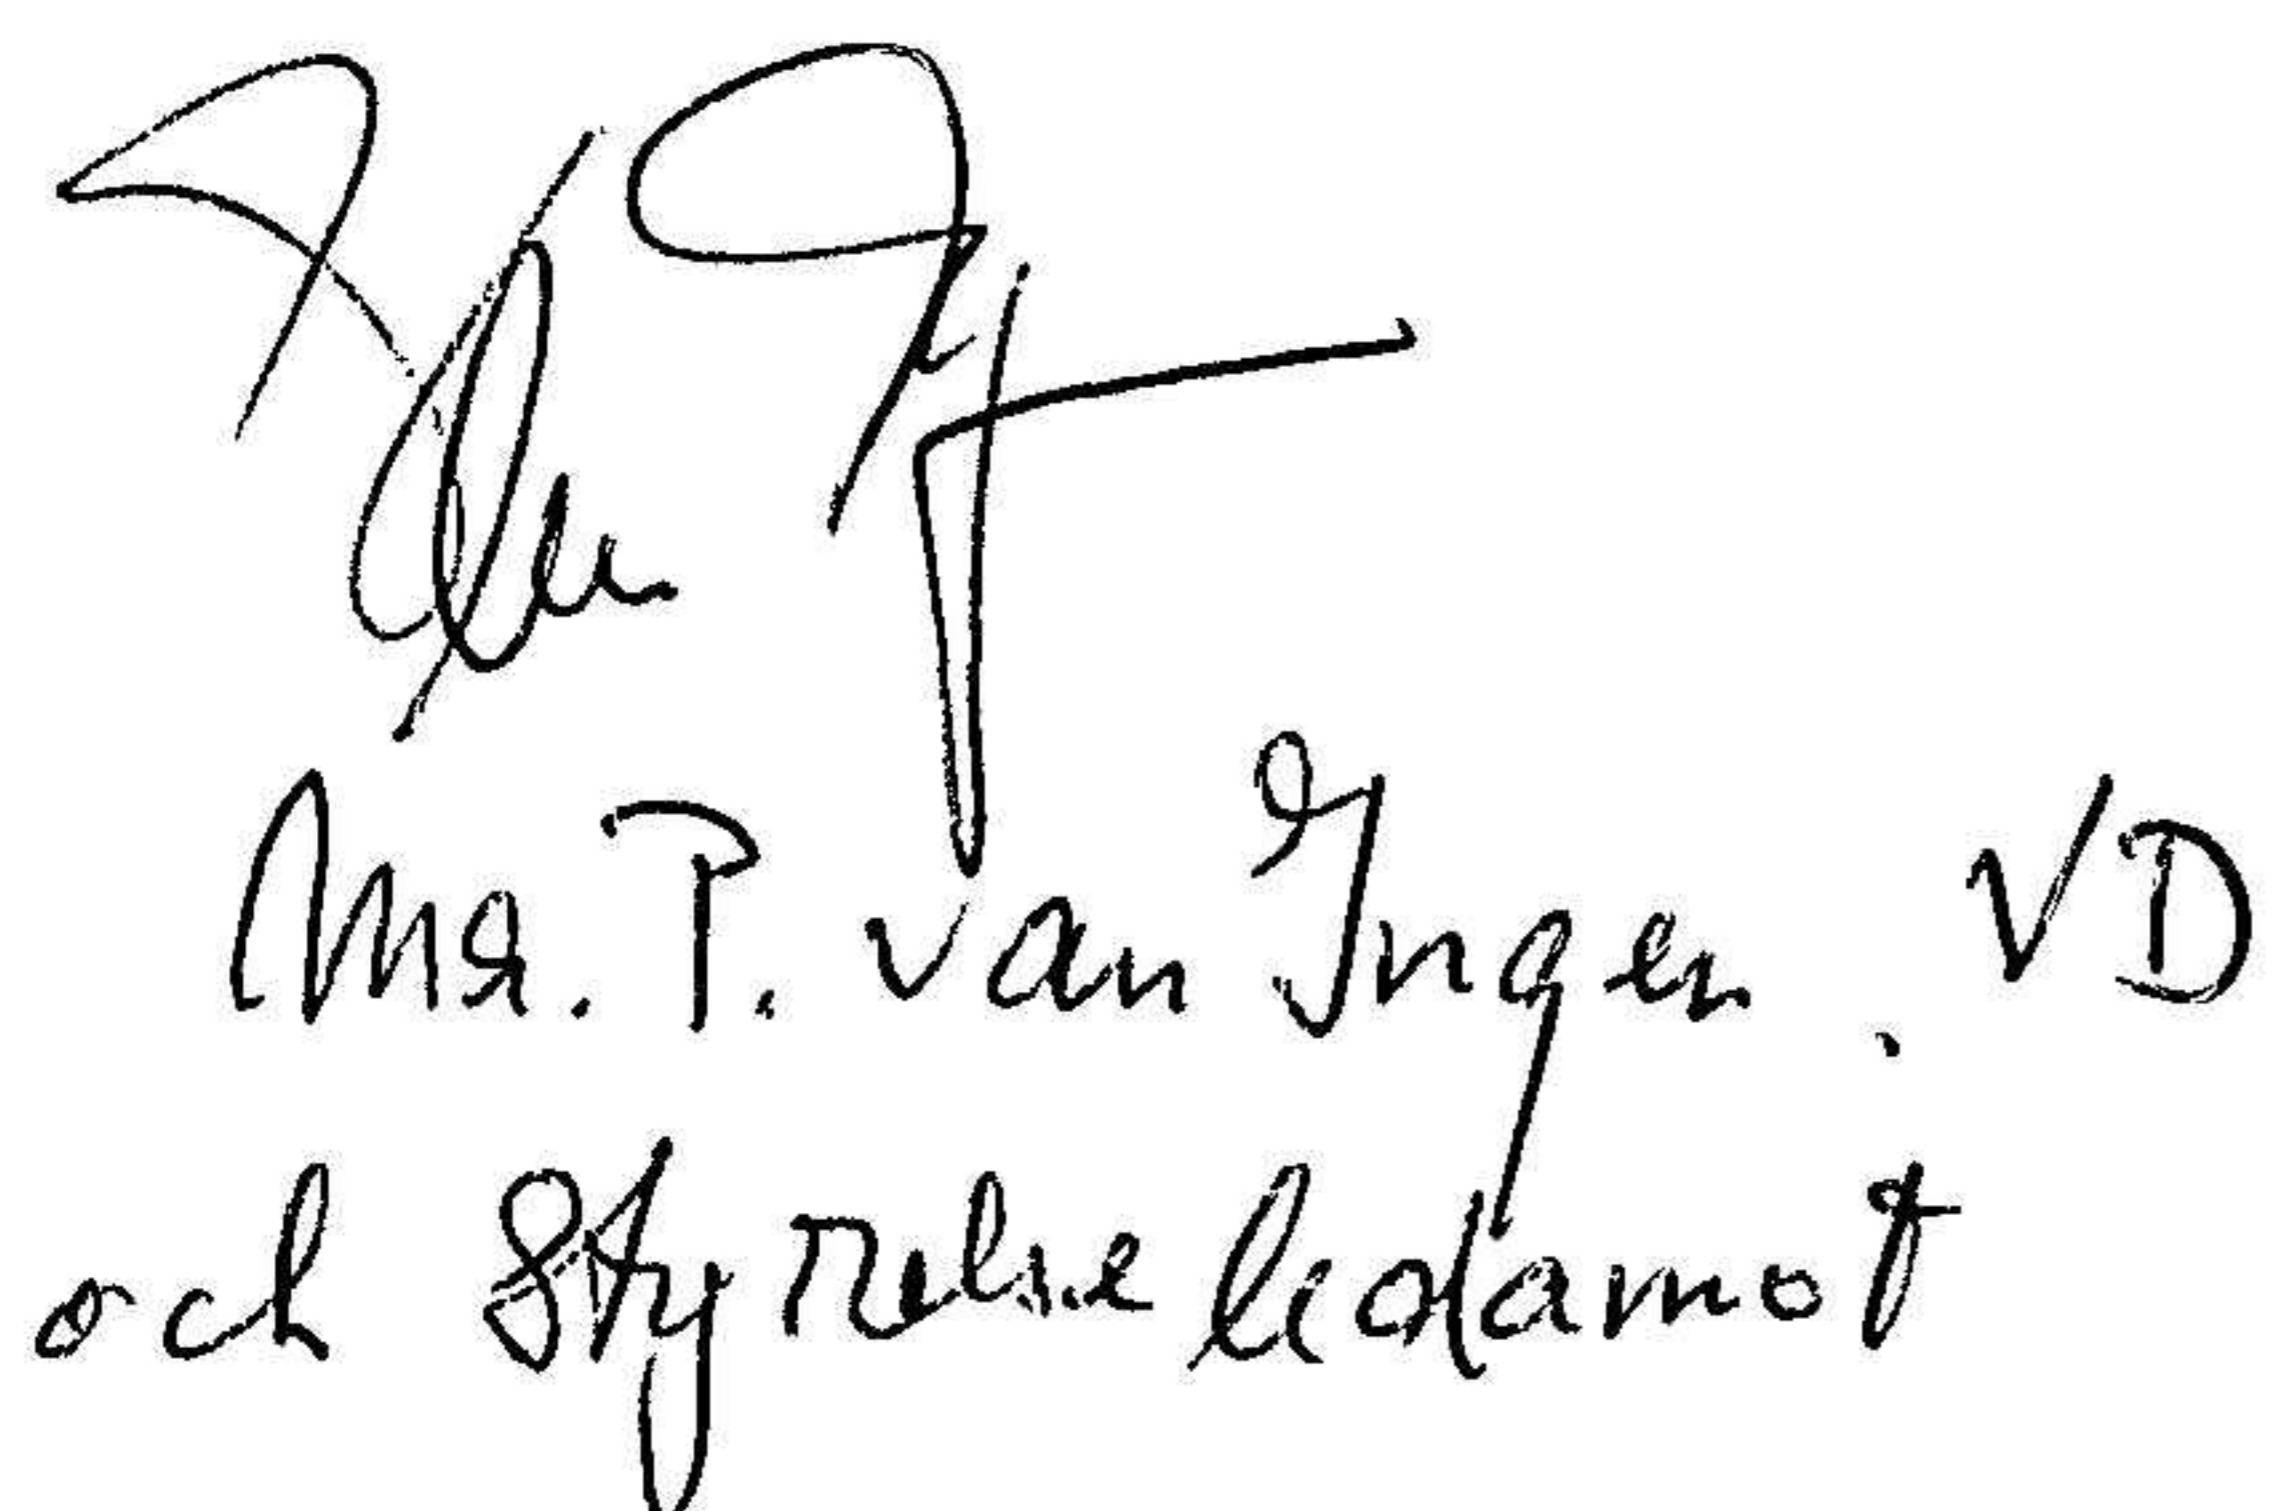 Mr. P. van Ingen. VD
och Styrelseledamot